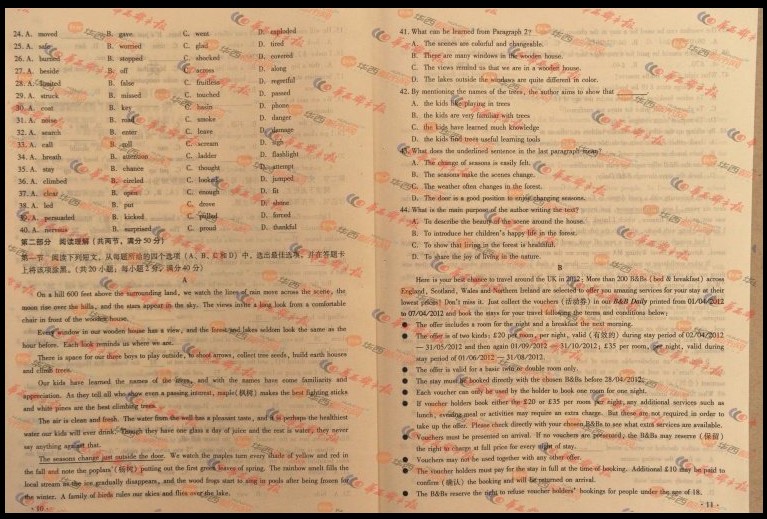 24. A. moved B. gave C. went D. exploded
25. A. safe B. worried C. glad D. tired
26. A. burned B. stopped C. shocked D. covered
27. A. beside B. off C. across D. along
28. A. limited B. false C. fruitless D. regretful
29. A. struck B. missed C. touched D. passed
30. A. coat B. key C. basin D. phone
31. A. noise B. mud C. smoke D. danger
32. A. search B. enter C. leave D. damage
33. A. call B. roll C. scream D. sigh
34. A. breath B. attention C. ladder D. flashlight
35. A. stay B. chance C. thought D. attempt
36. A. climbed B. circled C. looked D. jumped
37. A. clear B. open C. enough D. fit
38. A. led B. put C. drove D. chose
39. A. persuaded B. kicked C. pulled D. forced
40. A. nervous B. surprised C. proud D. thankful
第二部分 阅读理解（共两节，满分50分）
第一节 阅读下列短文，从每题所给的四个选项（A、B、C和D）中，选出最佳选项，并在答题卡
上将该项涂黑。（共20小题；每小题2分，满分40分）
A
On a hill 600 feet above the surrounding land, we watch the lines of rain move across the scene, the
moon rise over the hills, and the stars appear in the sky. The views invite a long look from a comfortable
chair in front of the wooden house.
Every window in our wooden house has a view, and the forest and lakes seldom look the same as the
hour before. Each look reminds us where we are.
There is space for our three boys to play outside, to shoot arrows, collect tree seeds, build earth houses
and climb trees.
Our kids have learned the names of the trees, and with the names have come familiarity and
appreciation. As they tell all who show even a passing interest, maple(枫树) makes the best fighting sticks
and white pines are the best climbing trees.
The air is clean and fresh. The water from the well has a pleasant taste, and it is perhaps the healthiest
water our kids will ever drink. Though they have one glass a day of juice and the rest is water, they never
say anything against that.
The seasons change just outside the door. We watch the maples turn every shade of yellow and red in
the fall and note the poplars'(杨树) putting out the first green leaves of spring. The rainbow smelt fills the
local stream as the ice gradually disappears, and the wood frogs start to sing in pools after being frozen for
the winter. A family of birds rules our skies and flies over the lake.
· 10 ·
41. What can be learned from Paragraph 2?
A. The scenes are colorful and changeable.
B. There are many windows in the wooden house.
C. The views remind us that we are in a wooden house.
D. The lakes outside the windows are quite different in color.
42. By mentioning the names of the trees, the author aims to show that ______.
A. the kids like playing in trees
B. the kids are very familiar with trees
C. the kids have learned much knowledge
D. the kids find trees useful learning tools
43. What does the underlined sentence in the last paragraph mean?
A. The change of seasons is easily felt.
B. The seasons make the scenes change.
C. The weather often changes in the forest.
D. The door is a good position to enjoy changing seasons.
44. What is the main purpose of the author writing the text?
A. To describe the beauty of the scene around the house.
B. To introduce her children's happy life in the forest.
C. To show that living in the forest is healthful.
D. To share the joy of living in the nature.
B
Here is your best chance to travel around the UK in 2012! More than 200 B&Bs (bed & breakfast) across
England, Scotland, Wales and Northern Ireland are selected to offer you amazing services for your stay at their
lowest prices! Don't miss it. Just collect the vouchers (活动券) in our B&B Daily printed from 01/04/2012
to 07/04/2012 and book the stays for your travel following the terms and conditions below:
● The offer includes a room for the night and a breakfast the next morning.
● The offer is of two kinds: £20 per room, per night, valid (有效的) during stay period of 02/04/2012
— 31/05/2012 and then again 01/09/2012 — 31/10/2012; £35 per room, per night, valid during
stay period of 01/06/2012 — 31/08/2012.
● The offer is valid for a basic twin or double room only.
● The stay must be booked directly with the chosen B&Bs before 28/04/2012.
● Each voucher can only be used by the holder to book one room for one night.
● If voucher holders book either the £20 or £35 room per night, any additional services such as
lunch, evening meal or activities may require an extra charge. But these are not required in order to
take up the offer. Please check directly with your chosen B&Bs to see what extra services are available.
● Vouchers must be presented on arrival. If no vouchers are presented, the B&Bs may reserve (保留)
the right to charge at full price for every night of stay.
● Vouchers may not be used together with any other offer.
● The voucher holders must pay for the stay in full at the time of booking. Additional £10 may be paid to
confirm (确认) the booking and will be returned on arrival.
● The B&Bs reserve the right to refuse voucher holders' bookings for people under the age of 18.
· 11 ·